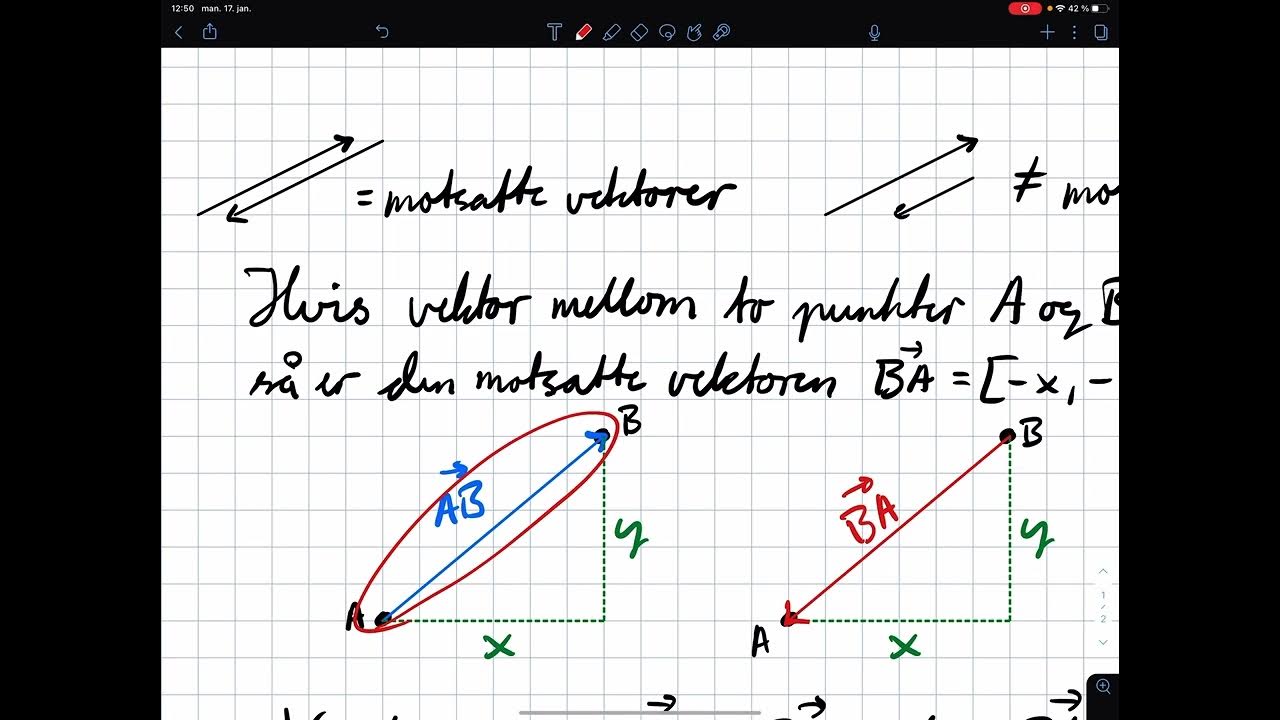 12:50 man. 17. jan. 42 %
= motsatte vektorer
≠ mo
Hvis vektor mellom to punkter A og B
så er den motsatte vektoren BA = [-x, -
B B
AB BA
y y
A A
x x
1
/
2